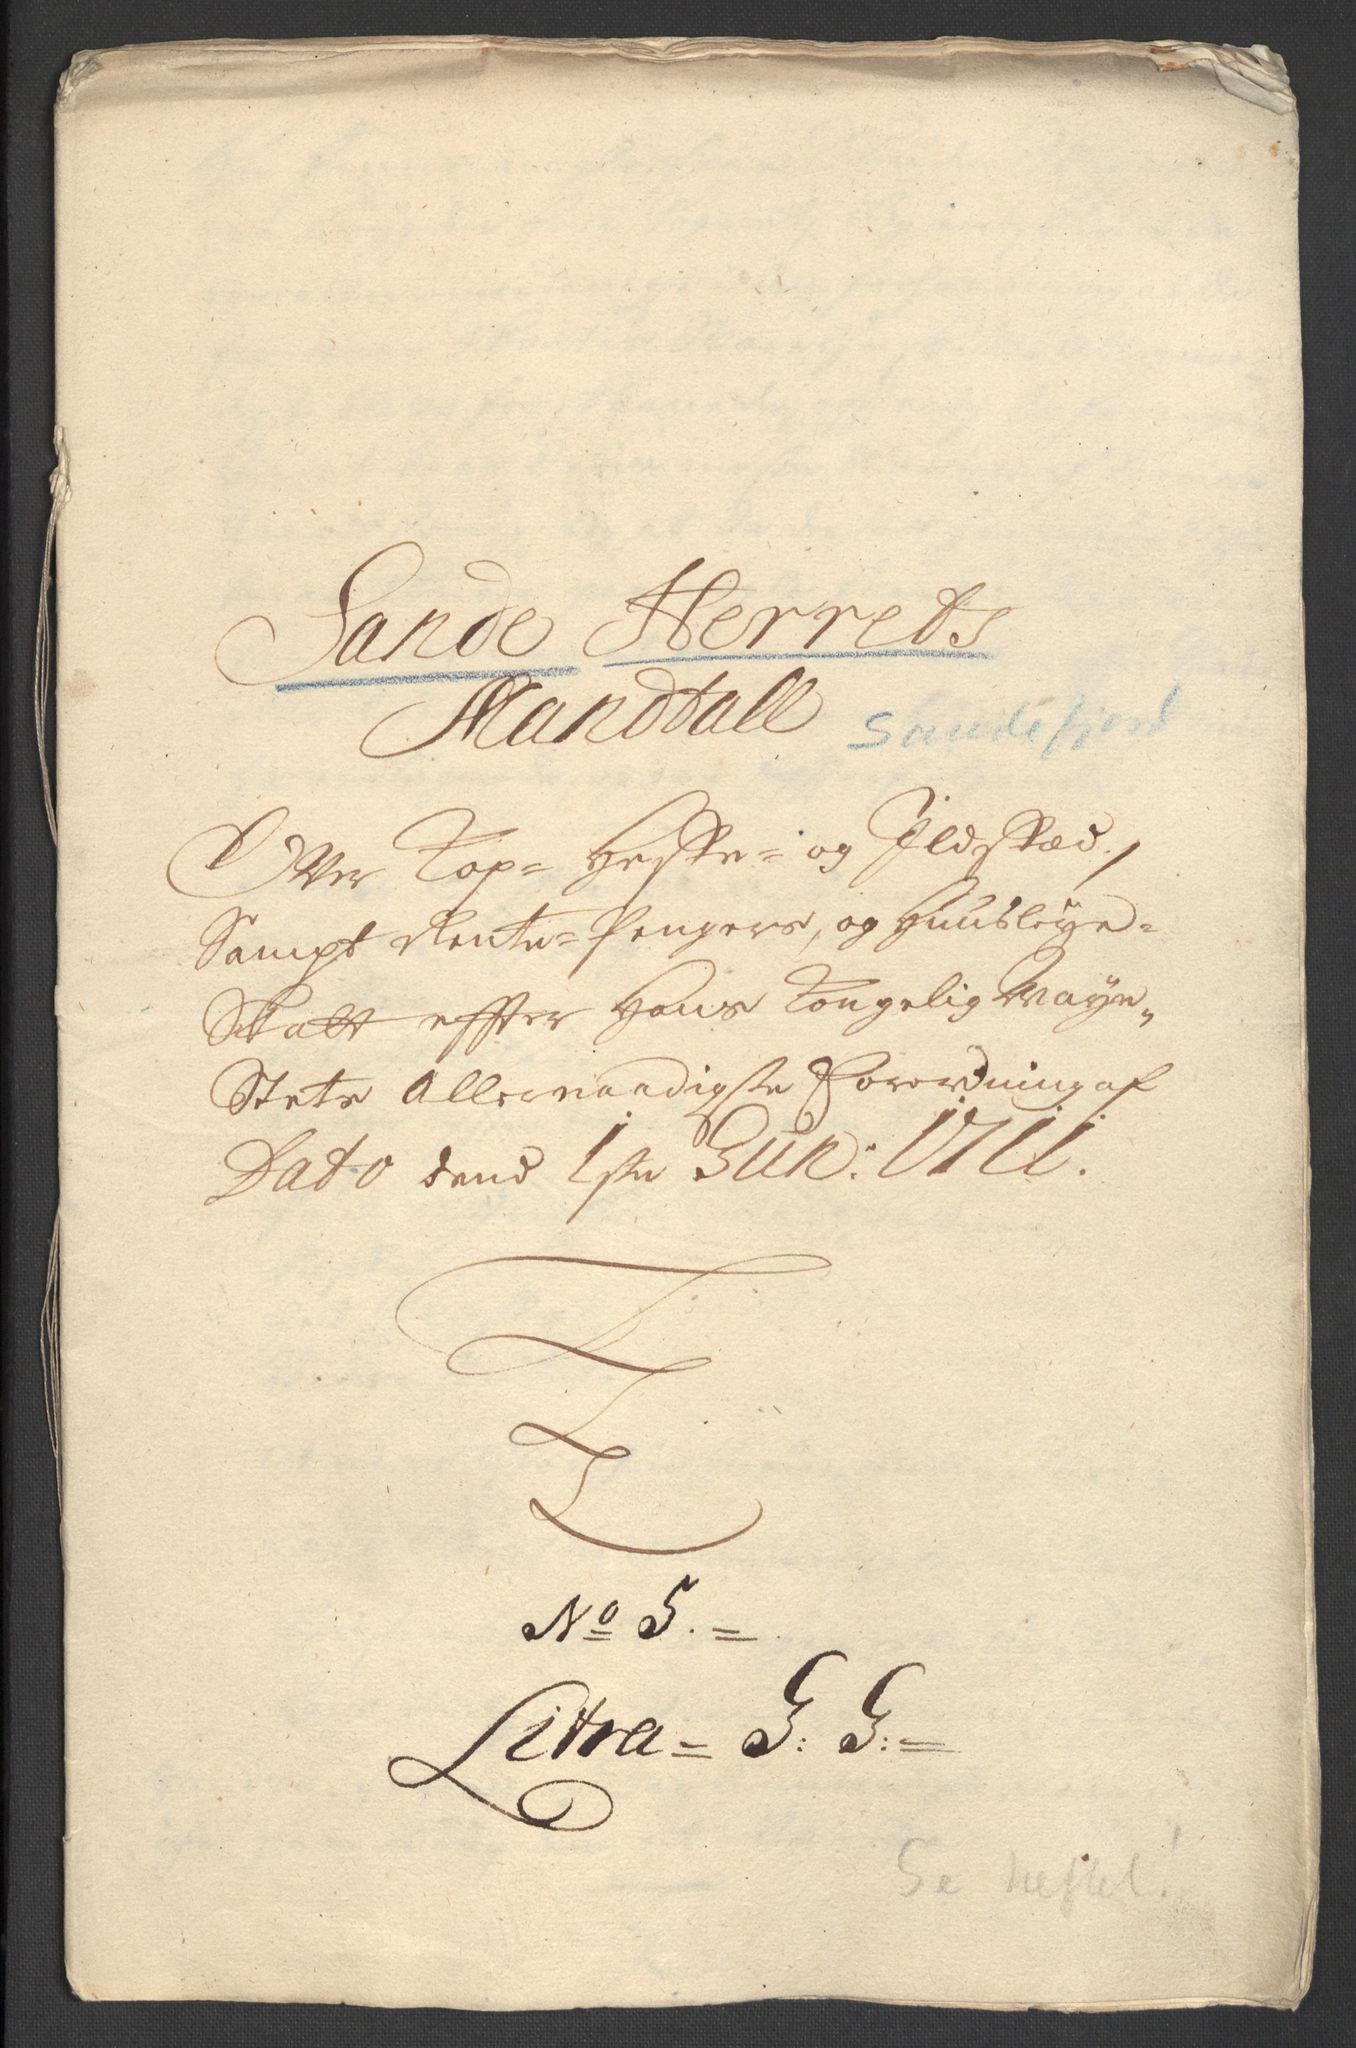 Sande Herrets
Mandtall
Sandefjord
Over Kop= Heste= og Ildsted,
Sampt Rente=Pengers, og Huusleye=
Skatt effter Hans Kongelig Maye„
Stets Allernaadigste Forordning af
Dato dend 1ste Jun: 1711.
No 5.=
Litra= G: G:=
Se heftet!